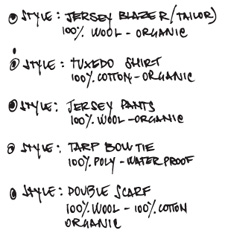 STYLE: JERSEY BLAZER/(TAILOR)
100% WOOL - ORGANIC
STYLE: TUXEDO SHIRT
100% COTTON - ORGANIC
STYLE: JERSEY PANTS
100% WOOL - ORGANIC
STYLE: TARP BOW TIE
100% POLY - WATERPROOF
STYLE: DOUBLE SCARF
100% WOOL - 100% COTTON
ORGANIC